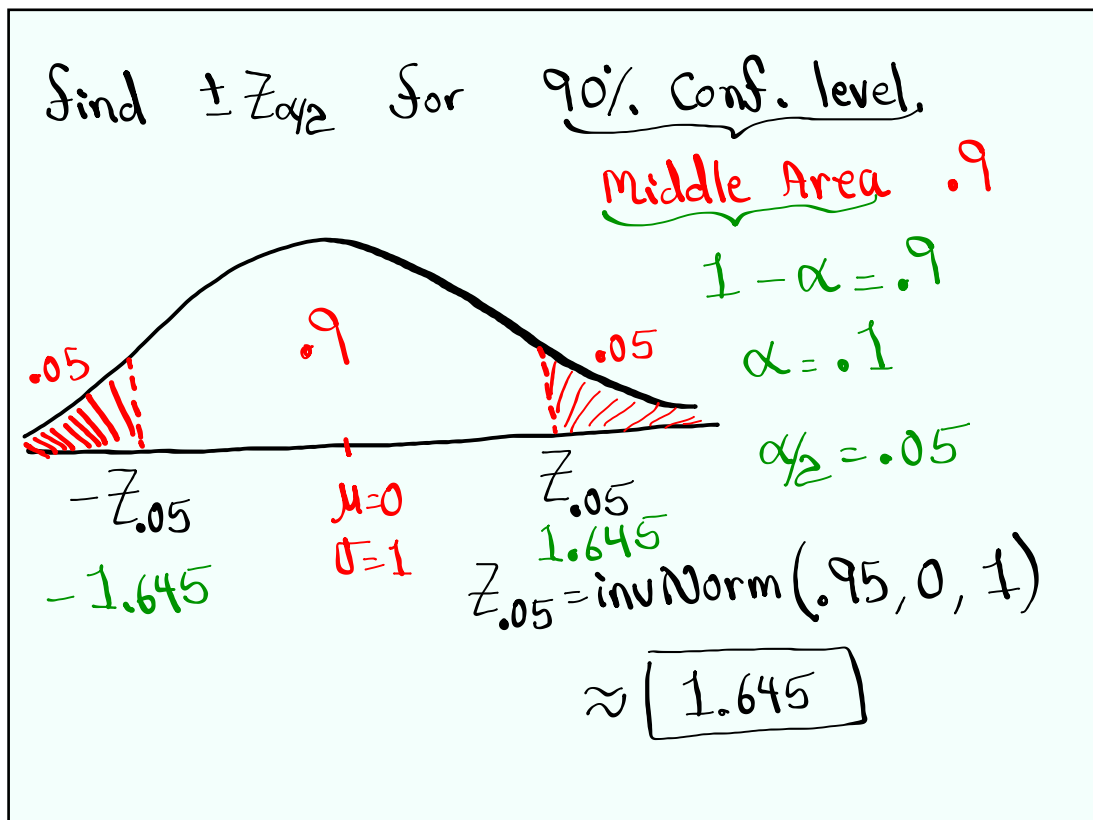 find ± Zα/2 for 90% Conf. level.
Middle Area .9
1 - α = .9
.9
.05
.05
α = .1
α/2 = .05
-Z.05
μ=0
Z.05
σ=1
1.645
-1.645
Z.05 = invNorm(.95, 0, 1)
≈ 1.645